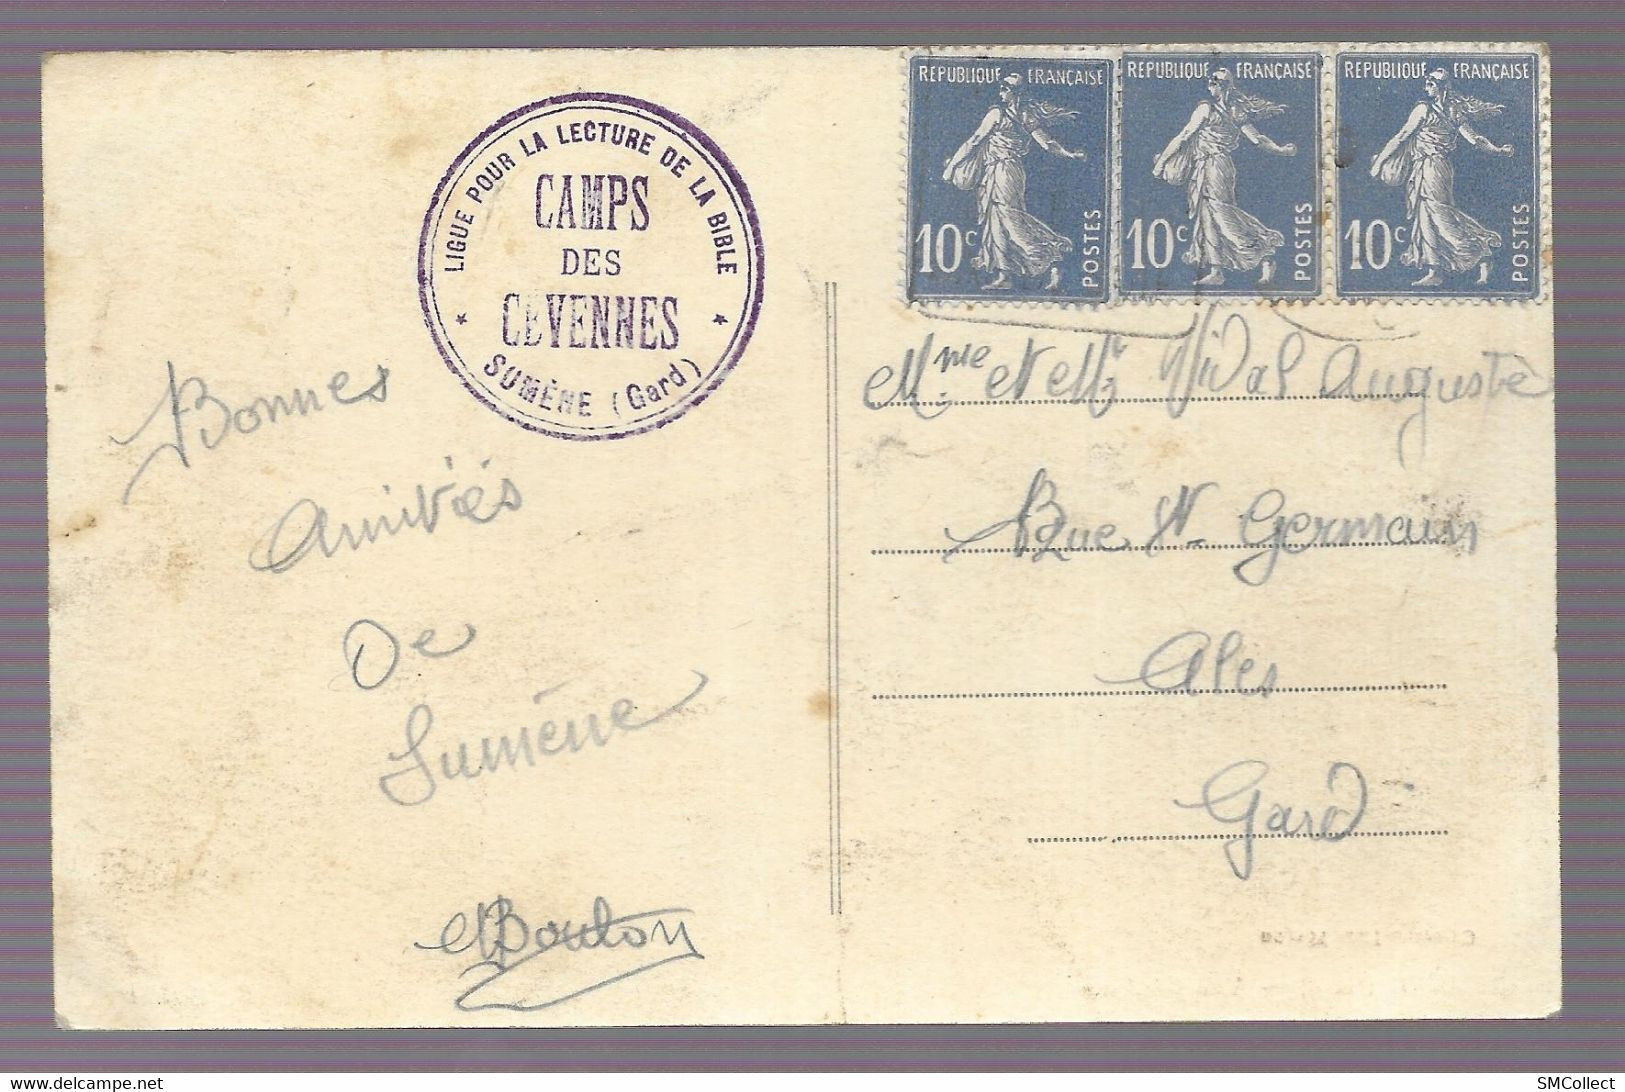 REPUBLIQUE FRANÇAISE
10c
POSTES
REPUBLIQUE FRANÇAISE
10c
POSTES
REPUBLIQUE FRANÇAISE
10c
POSTES
LIGUE POUR LA LECTURE DE LA BIBLE
CAMPS
DES
CEVENNES
* SUMÈNE (Gard) *
Bonnes
Amitiés
De
Sumène
MBouton
Mme et Mr Vidal Auguste
Rue St Germain
Ales
Gard
delcampe.net
SMCollect